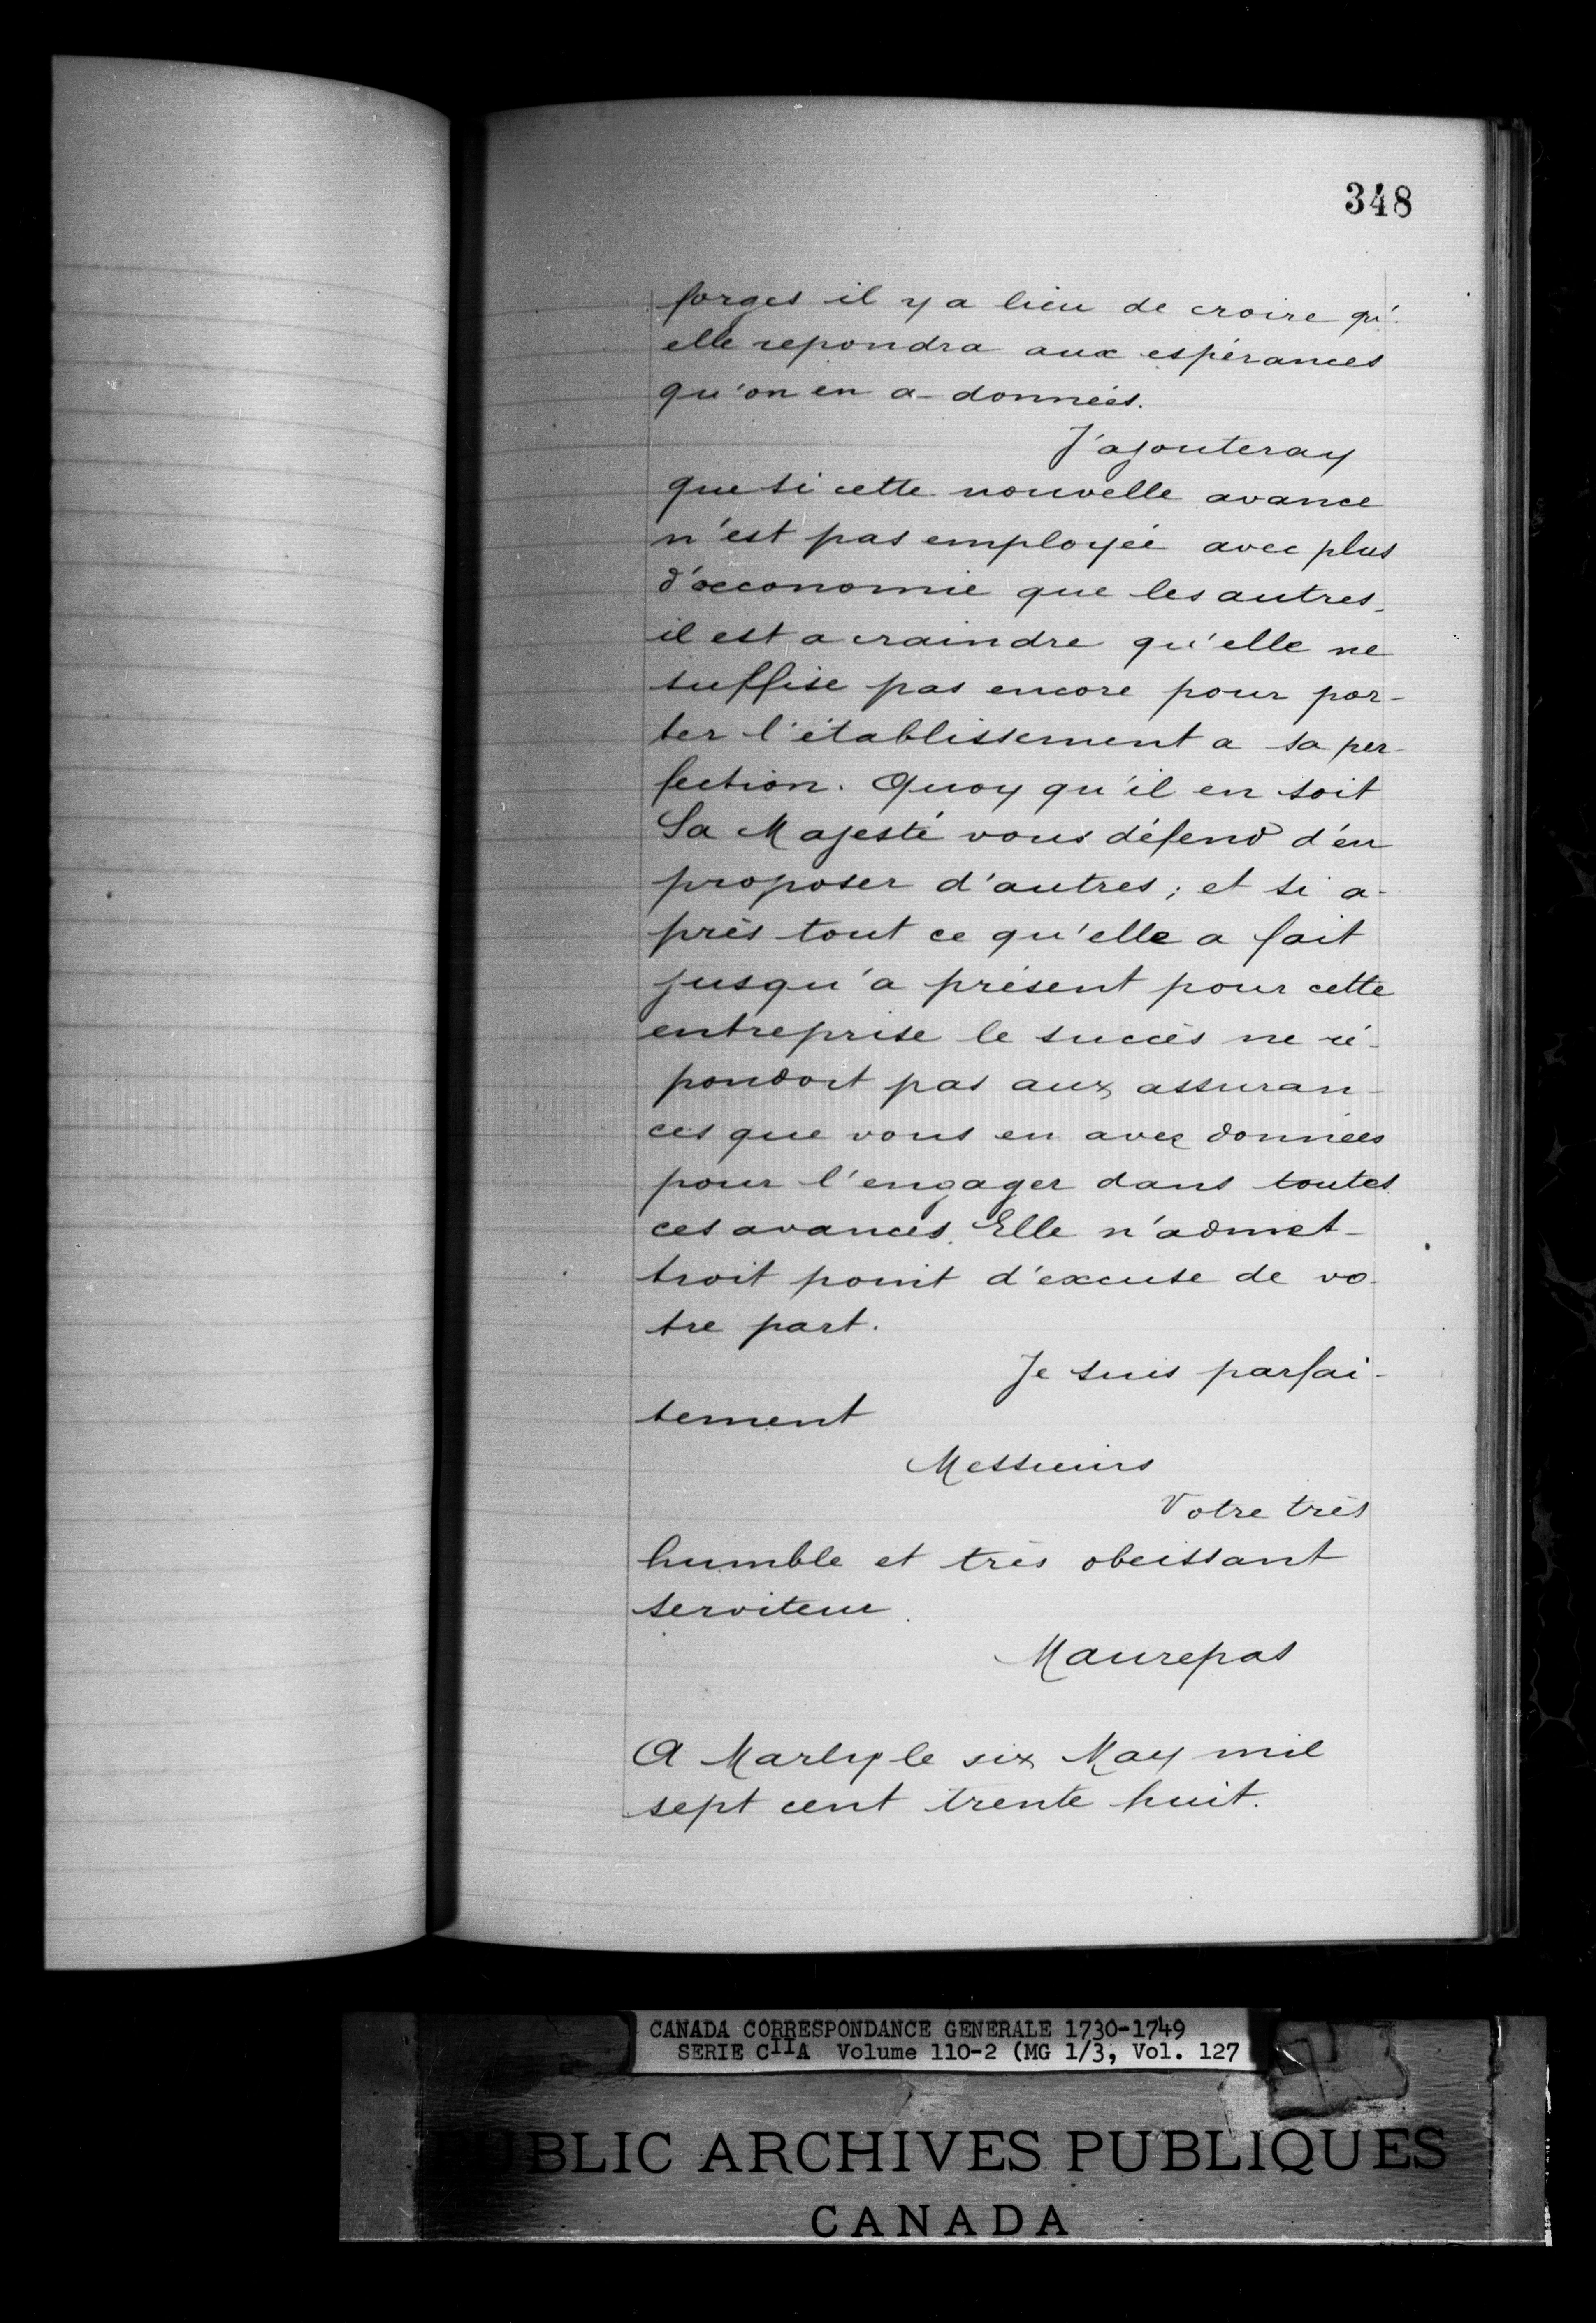 348
forges il y a lieu de croire qu'
elle repondra aux espérances
qu'on en a données.
J'ajouteray
que si cette nouvelle avance
n'est pas employée avec plus
d'œconomie que les autres,
il est a craindre qu'elle ne
suffise pas encore pour por-
ter l'établissement a sa per-
fection. Quoy qu'il en soit
Sa Majesté vous défend d'en
proposer d'autres; et si a-
près tout ce qu'elle a fait
jusqu'a présent pour cette
entreprise le succès ne ré-
pondoit pas aux assuran-
ces que vous en avez données
pour l'engager dans toutes
ces avances. Elle n'admet-
troit point d'excuse de vo-
tre part.
Je suis parfai-
tement
Messieurs
Votre très
humble et très obeissant
serviteur.
Maurepas
A Marly le six May mil
sept cent trente huit.
CANADA CORRESPONDANCE GENERALE 1730-1749
SERIE CIIA Volume 110-2 (MG 1/3, Vol. 127
PUBLIC ARCHIVES PUBLIQUES
CANADA